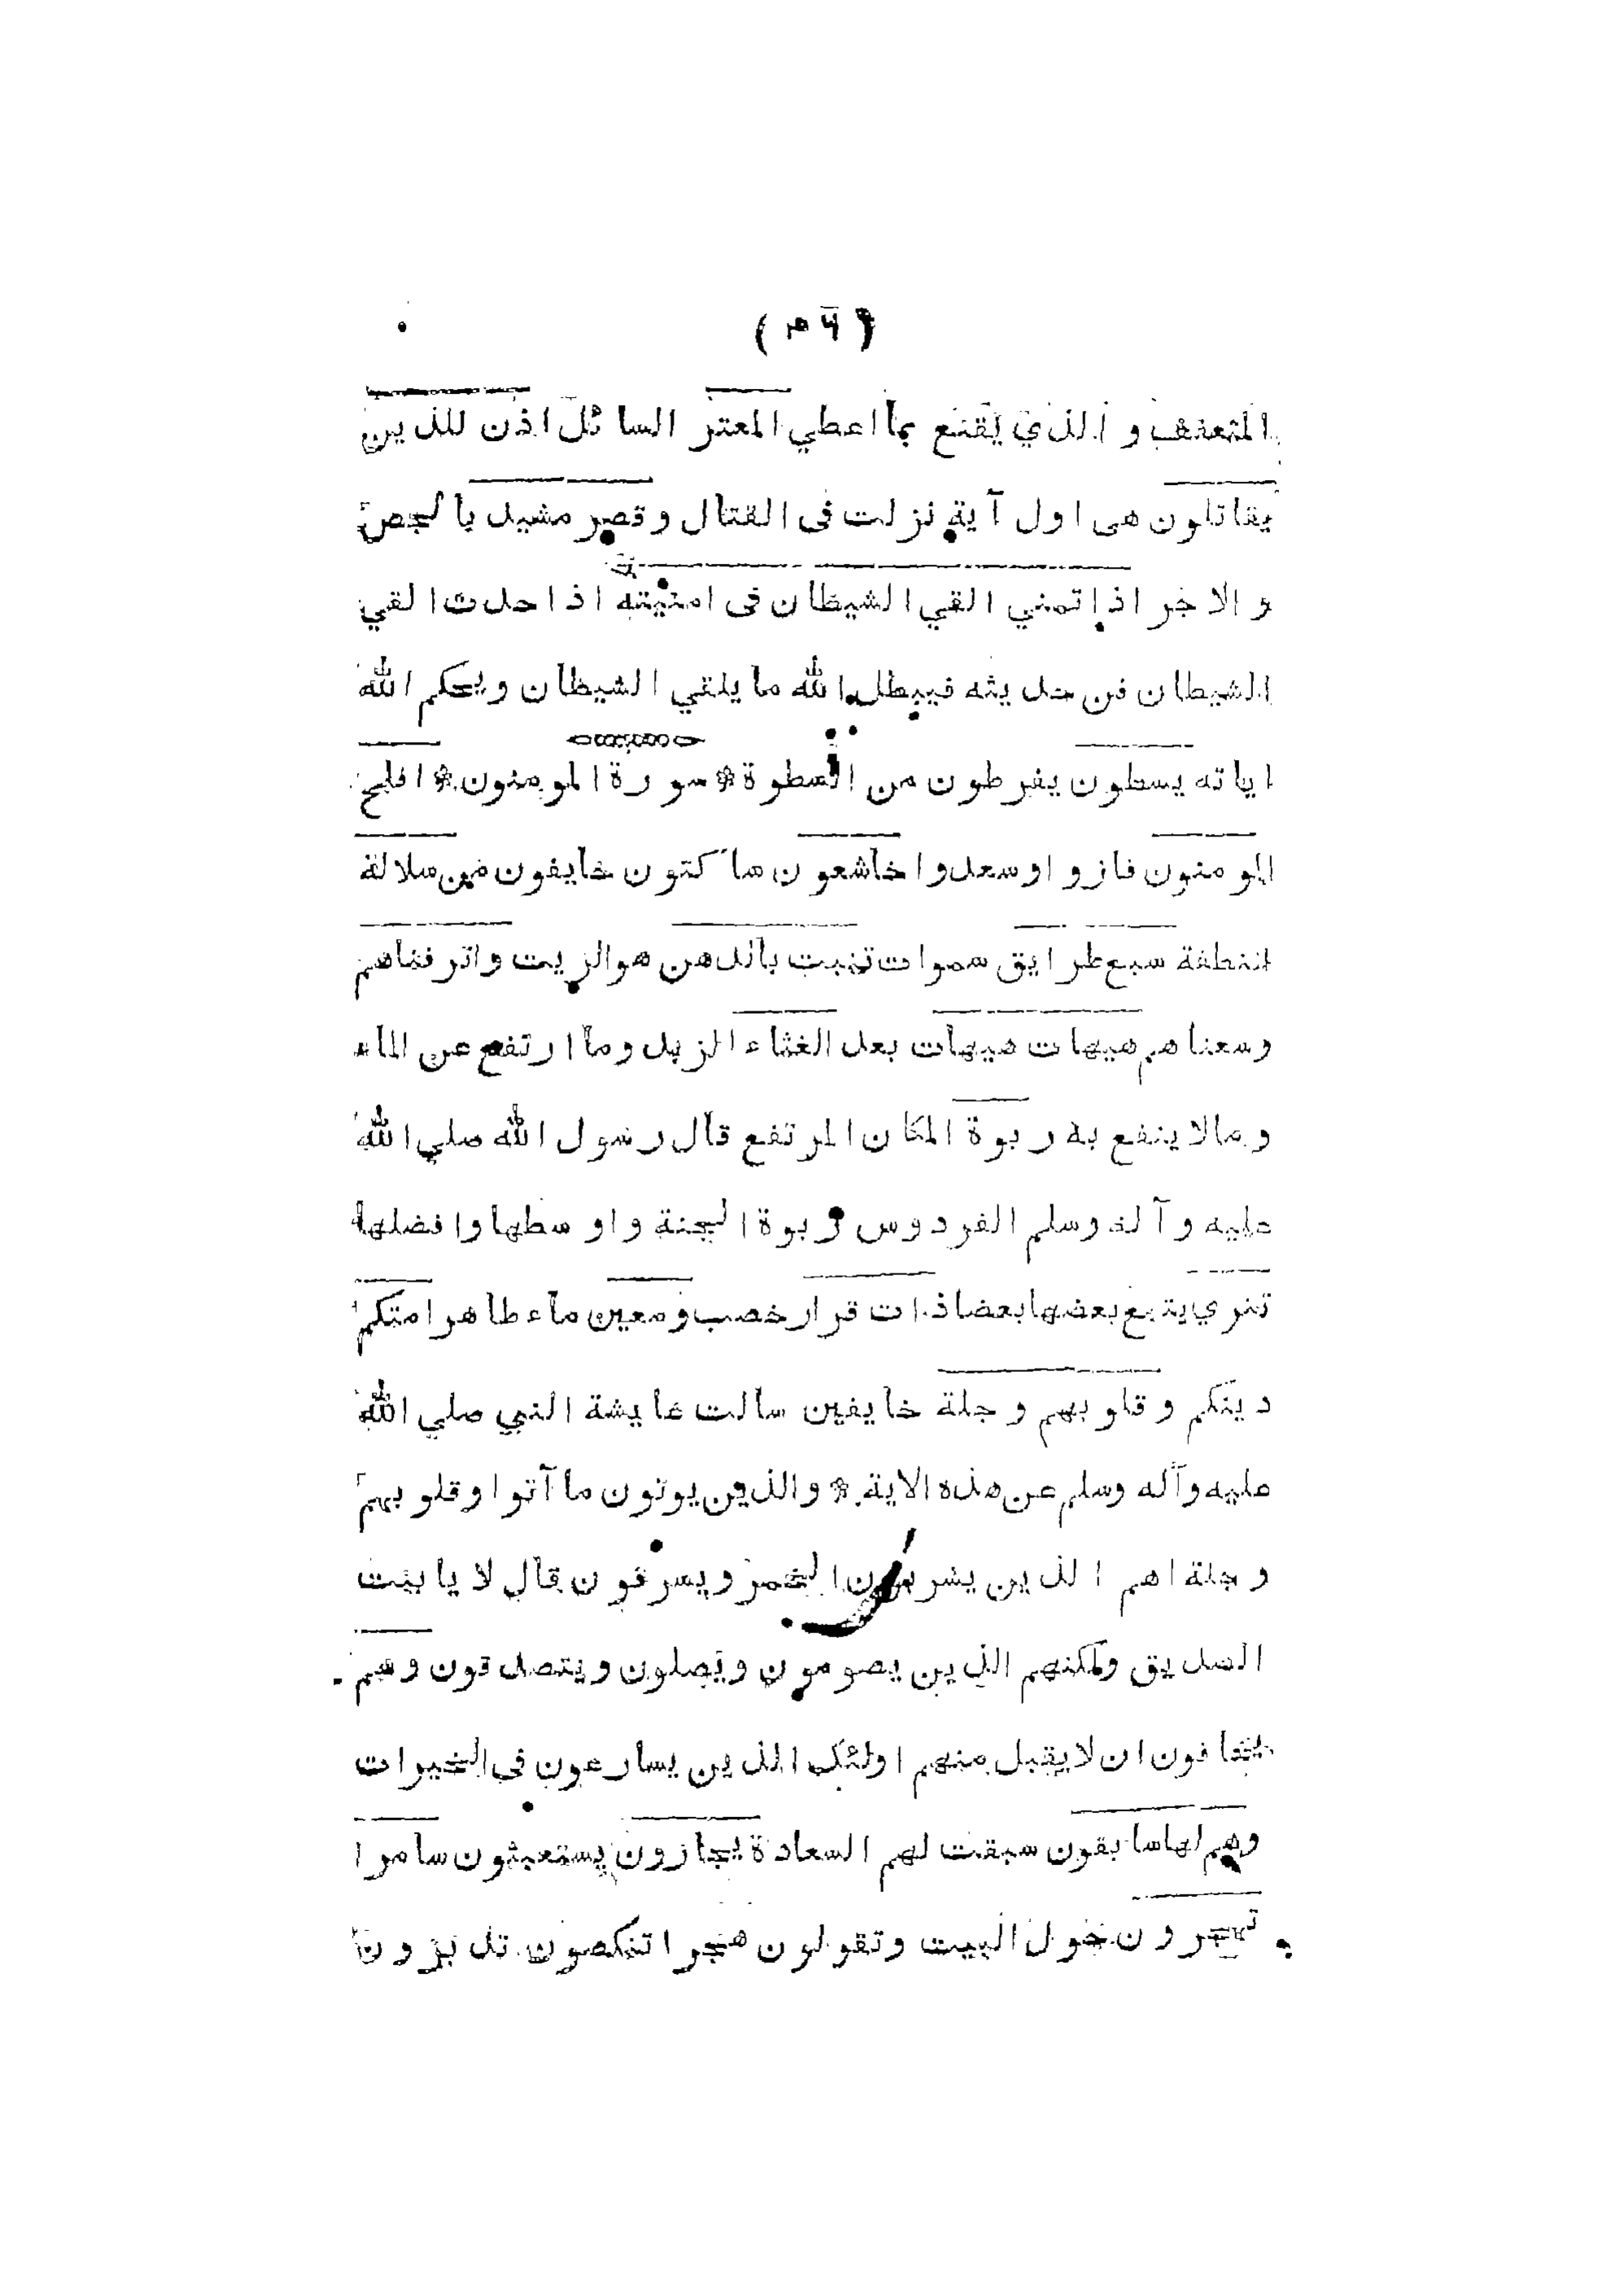 المتعفف و الذي يقنع بما اعطي المعتر السائل اذن للذين
يقاتلون هى اول آية نزلت فى القتال و قصر مشيد بالجص
و الاجر اذا تمني القي الشيطان فى امنيته اذا حدث القي
الشيطان فى حديثه فيبطل الله ما يلقي الشيطان و يحكم الله
اياته يسطون يفرطون من السطوة * سورة المومنون * افلح
المومنون فازوا وسعدوا خاشعون ساكتون خايفون من سلالة
النطفة سبع طرايق سموات تنبت بالدهن هو الزيت و اترفناهم
وسعناهم هيهات هيهات بعد الغثاء الزبد وما ارتفع عن الماء
وما لا ينفع به ربوة المكان المرتفع قال رسول الله صلي الله
عليه و آله وسلم الفردوس ربوة الجنة و اوسطها و افضلها
تتري يتبع بعضها بعضا ذات قرار خصب و معين ماء طاهر امتكم
دينكم و قلوبهم وجلة خايفين سالت عايشة النبي صلي الله
عليه وآله وسلم عن هذه الاية * والذين يوتون ما آتوا وقلوبهم
وجلة اهم الذين يشربون الخمر و يسرقون قال لا يا بنت
الصديق ولكنهم الذين يصومون و يصلون و يتصدقون وهم
يخافون ان لا يقبل منهم اولئك الذين يسارعون فى الخيرات
وهم لها سابقون سبقت لهم السعادة يجازون يستغيثون سامرا
تهجرون حول البيت و تقولون هجرا تنكصون تدبرون